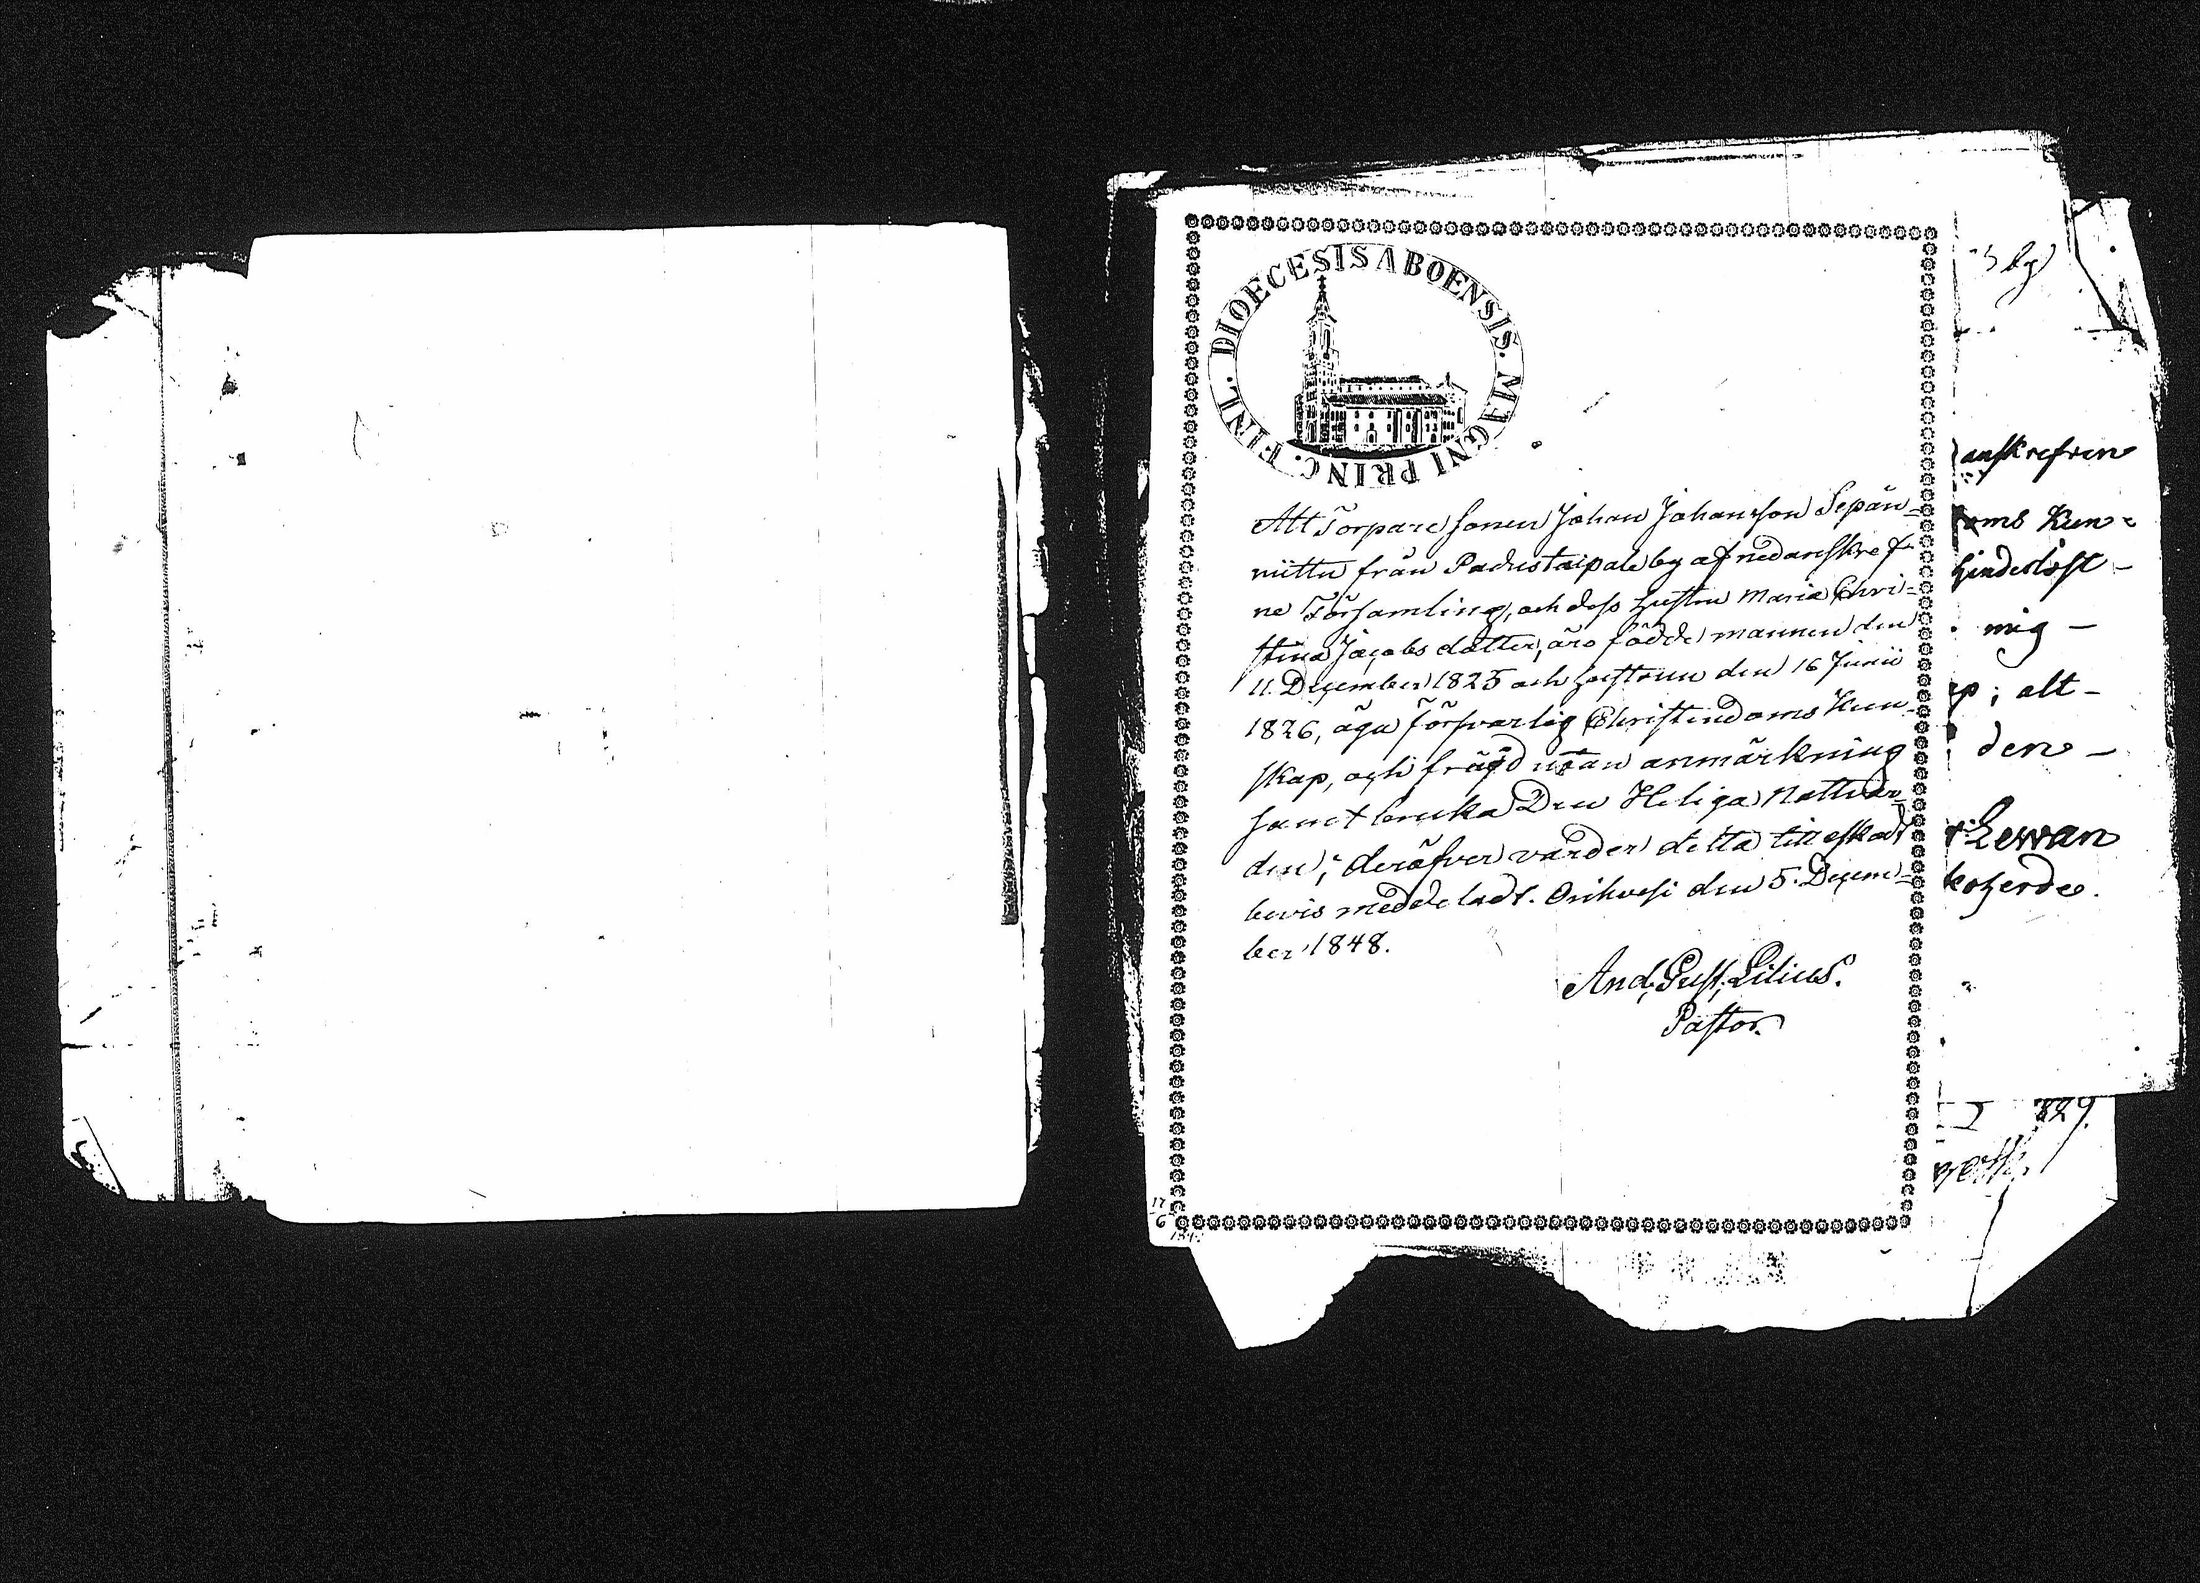 DIOECESIS ABOENSIS. MAGNI PRINC. FINL.
Att Torpare sonen Johan Johansson Sepän=
niittu från Padustaipale by af nedanskref=
ne Församling, och dess hustru Maria Chri=
stina Jacobs dotter, äro födde mannen den
11. December 1825 och hustrun den 16 Junii
1826, äga försvarlig Christendoms Kun=
skap, och frägd utan anmärkning
samt bruka Den Heliga Nattvar=
den; deröfver varder detta till äskadt
bevis meddeladt. Orihvesi den 5. Decem=
ber 1848.
And. Gust. Lilius.
Pastor.
anskrefven
oms Kun=
hinderlöst
mig
p; alt
den
Lewan
koherde.
17
6
829.